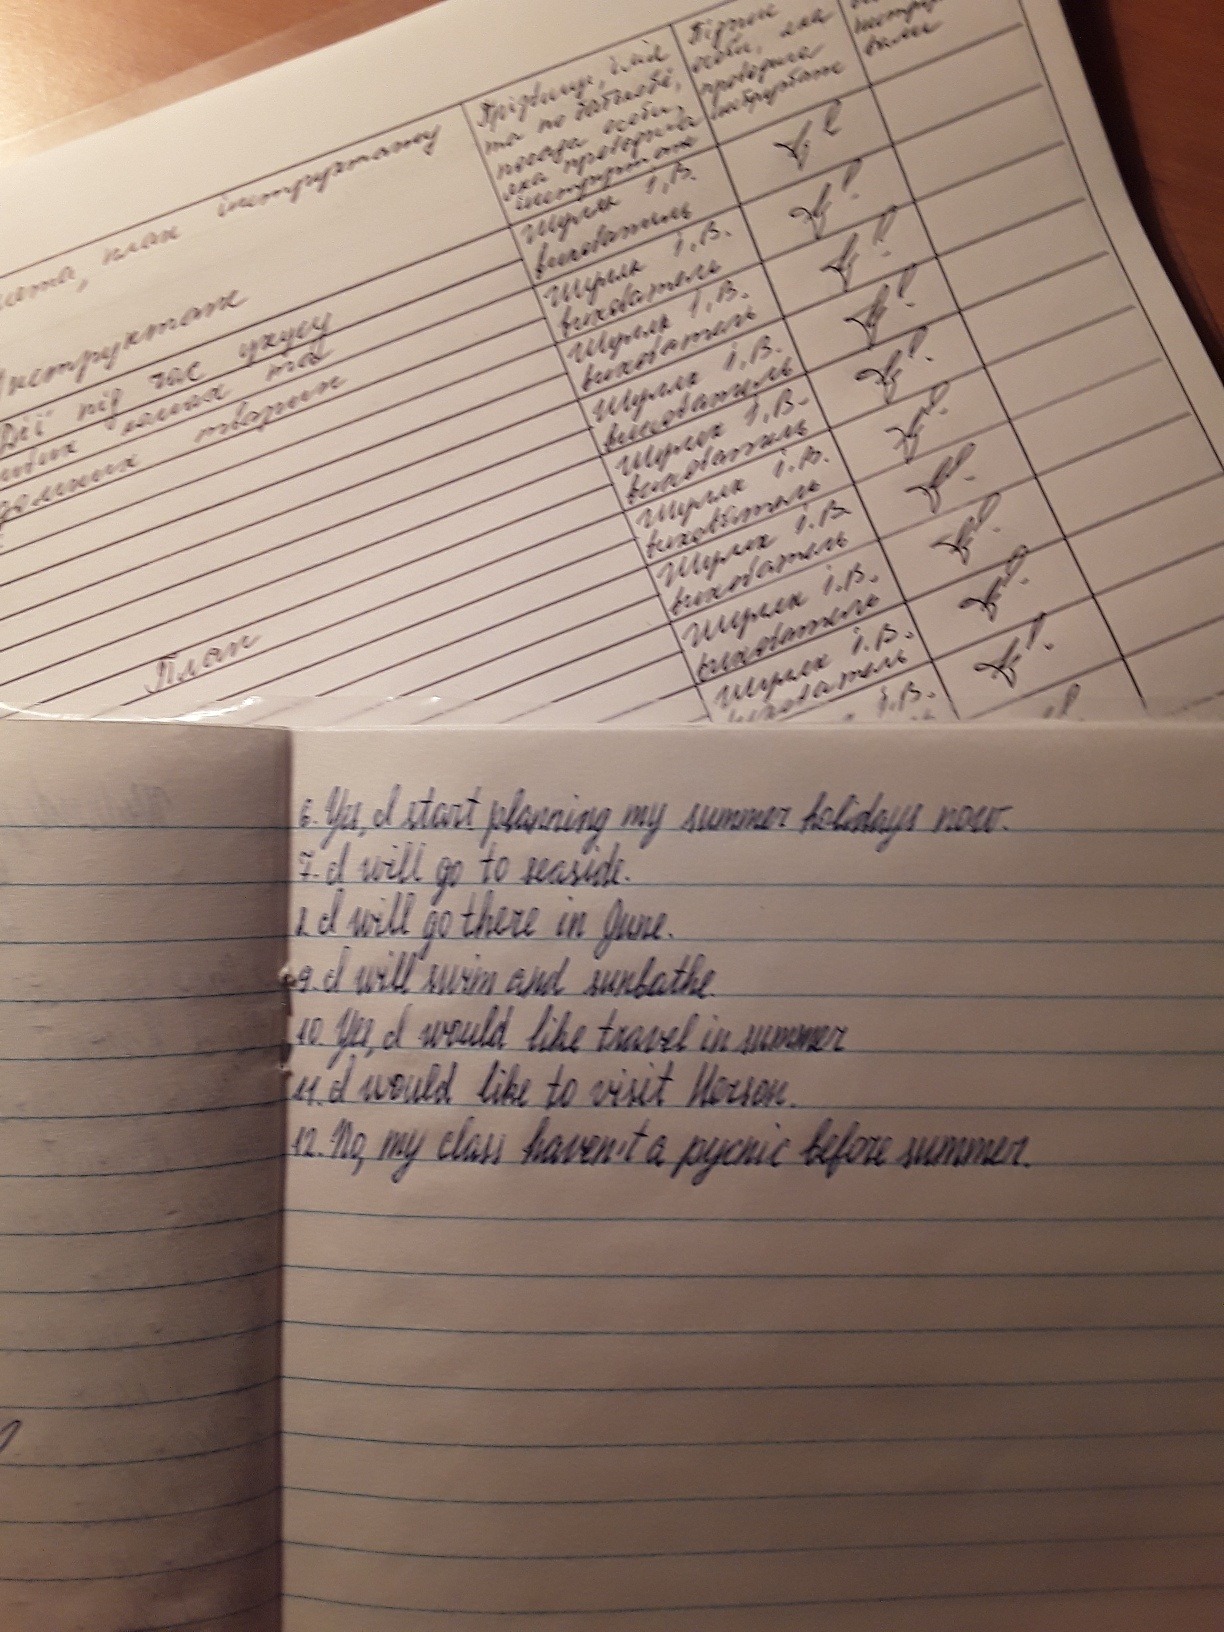 інструктажу
план
Прізвище, ім'я
та по батькові,
посада особи,
яка проводила
інструктаж
Підпис
особи, яка
проводила
інструктаж
Інструктаж
Дії під час укусу
диких комах та
домашніх тварин
План
Шуляк І.В.
вихователь
Шуляк І.В.
вихователь
Шуляк І.В.
вихователь
Шуляк І.В.
вихователь
Шуляк І.В.
вихователь
Шуляк І.В.
вихователь
Шуляк І.В.
вихователь
Шуляк І.В.
вихователь
Шуляк І.В.
вихователь
І.В.
6. Yes, I start planning my summer holidays now.
7. I will go to seaside.
8. I will go there in June.
9. I will swim and sunbathe.
10. Yes, I would like travel in summer
11. I would like to visit Herson.
12. No, my class haven't a pycnic before summer.